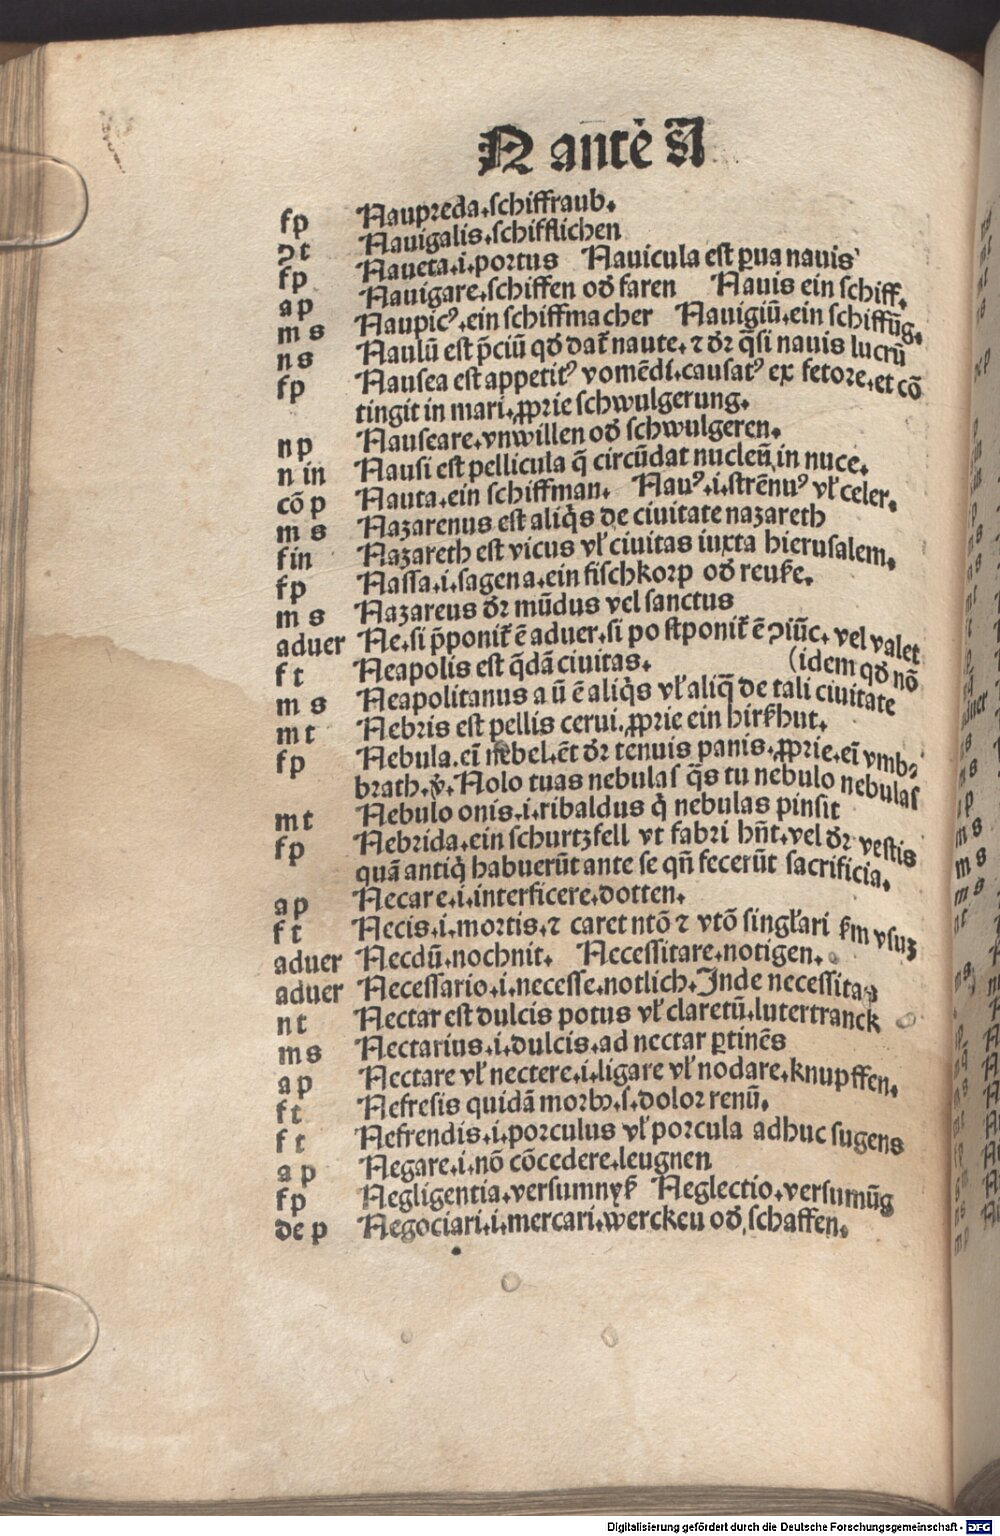 N ante A
fp Naupreda.schiffraub.
ꝯt Nauigalis.schifflichen
fp Naueta.i.portus Nauicula est ꝑua nauis
ap Nauigare.schiffen od̕ faren Nauis ein schiff.
m s Naupicꝰ.ein schiffmacher Nauigiū.ein schiffūg.
n s Naulū est p̄ciū qd̕ dat̕ naute.⁊ dr̕ q̄si nauis lucrū
fp Nausea est appetitꝰ vomēdi.causatꝰ ex fetore.et cō
tingit in mari.ꝓprie schwulgerung.
n p Nauseare.vnwillen od̕ schwulgeren.
n in Nausi est pellicula q̄ circūdat nucleū in nuce.
cō p Nauta.ein schiffman. Nauꝰ.i.strēnuꝰ vl̕ celer.
m s Nazarenus est aliq̇s de ciuitate nazareth
f in Nazareth est vicus vl̕ ciuitas iuxta hierusalem.
fp Nassa.i.sagena.ein fischkorp od̕ reuse.
m s Nazareus dr̕ mūdus vel sanctus
aduer Ne.si p̄ponit̕ ē aduer.si postponit̕ ē ꝯiūc. vel valet
f t Neapolis est q̄dā ciuitas. (idem qd̕ nō
m s Neapolitanus a ū ē aliq̇s vl̕ aliq̄ de tali ciuitate
m t Nebris est pellis cerui.ꝓprie ein hirßhut.
fp Nebula.eī nebel.ēt dr̕ tenuis panis.ꝓprie.eī vmb⸗
brath.v̕.Nolo tuas nebulas q̄s tu nebulo nebulas
m t Nebulo onis.i.ribaldus q̇ nebulas pinsit
fp Nebrida.ein schurtzfell vt fabri hn̄t.vel dr̕ vestis
quā antiq̇ habuerūt ante se qn̄ fecerūt sacrificia.
a p Necare.i.interficere.dotten.
f t Necis.i.mortis.⁊ caret ntō ⁊ vtō singl̕ari ẜm vsuꝫ
aduer Necdū.nochnit. Necessitare.notigen.
aduer Necessario.i.necesse.notlich.Inde necessitas
n t Nectar est dulcis potus vl̕ claretū.lutertranck
m s Nectarius.i.dulcis.ad nectar ꝑtinēs
a p Nectare vl̕ nectere.i.ligare vl̕ nodare.knupffen.
f t Nefresis quidā morbꝰ.s.dolor renū.
f t Nefrendis.i.porculus vl̕ porcula adhuc sugens
a p Negare.i.nō cōcedere.leugnen
fp Negligentia.versumnyß Neglectio.versumūg
de p Negociari.i.mercari.werckeu od̕ schaffen.
Digitalisierung gefördert durch die Deutsche Forschungsgemeinschaft - DFG